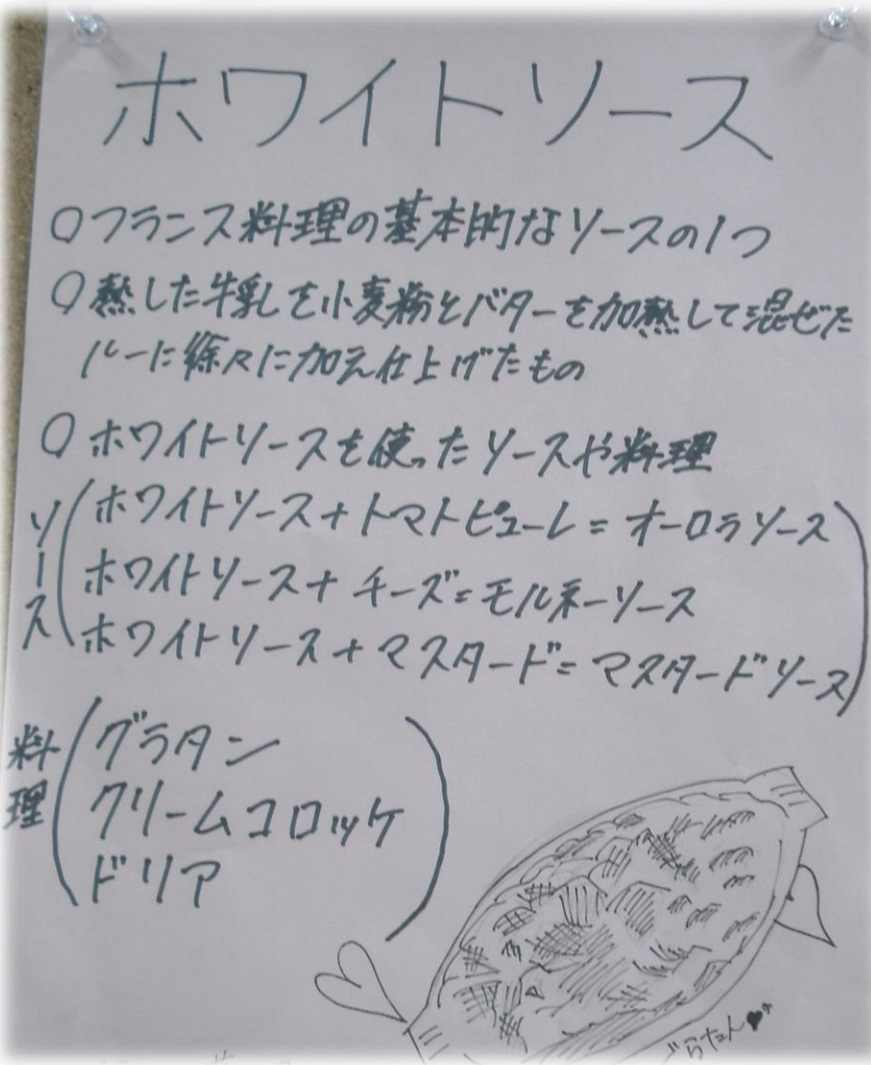 ホワイトソース
○フランス料理の基本的なソースの1つ
○熱した牛乳を小麦粉とバターを加熱して混ぜた
ルーに徐々に加え仕上げたもの
○ホワイトソースを使ったソースや料理
ソース
ホワイトソース+トマトピューレ=オーロラソース
ホワイトソース+チーズ=モルネーソース
ホワイトソース+マスタード=マスタードソース
料理
グラタン
クリームコロッケ
ドリア
ぐらたん♥